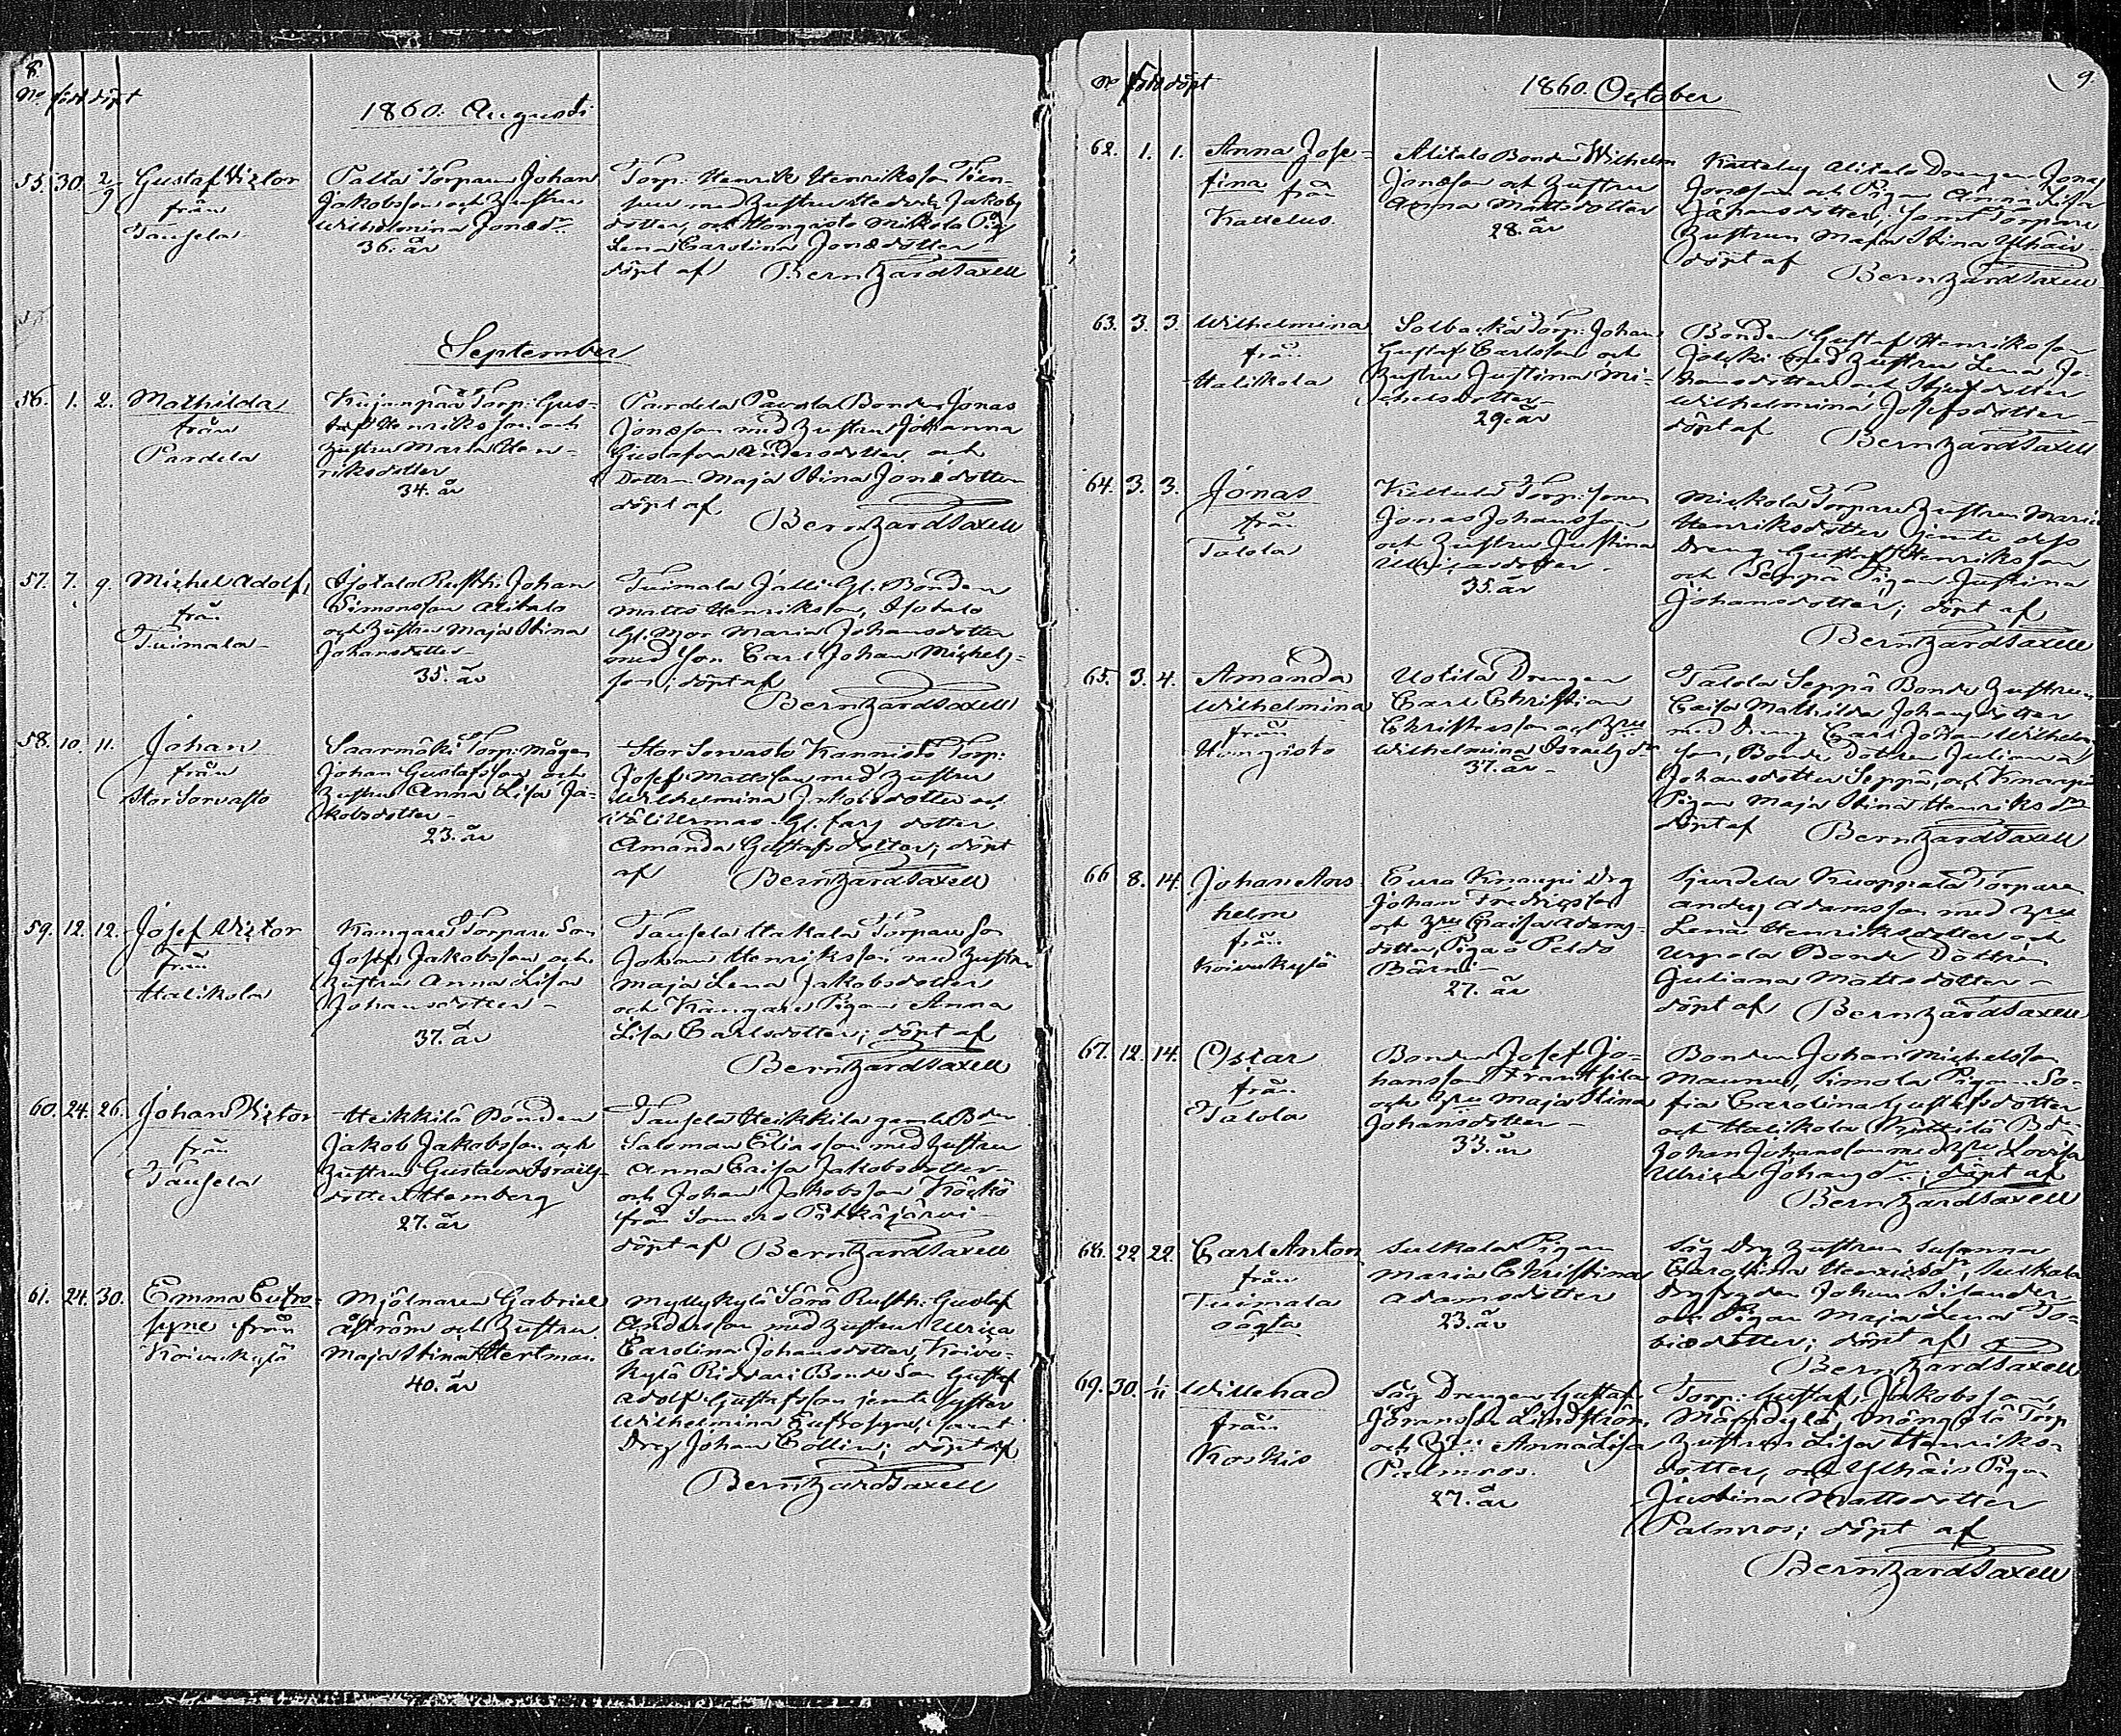 8.
No född döpt
1860. Augusti
55. 30. 2/9 Gustaf Victor
från
Taufela
Palta Torparen Johan
Jakobsson och Hustrun
Wilhelmina Jonæd:r
36. år
Torp. Henrik Henriksson
med Hustrun Hedvig Jakobs
dotter, och Hongisto Mikola Pig
Lena Carolina Jonædotter
döpt af Bernhard Saxell
September
56. 1. 2. Mathilda
från
Pardela
Kujanpää Torp: Gus-
taf Henriksson och
Hustrun Maria Hen-
riksdotter
34. år
Pardela Pavola Bonden Jonas
Jonæson med Hustrun Johanna
Gustafva Andersdotter och
Dottren Maja Stina Jonædotter
döpt af
Bernhard Saxell
57. 7. 9. Michel Adolf,
från
Tuimala
Isotalo Rusth: Johan
Simonsson Alitalo
och Hustrun Maja Stina
Johansdotter
35. år
Tuimala Jälli Gl. Bonden
Matts Henriksson, Isotalo
Gl. Mor Maria Johansdotter
med Son Carl Johan Michels-
son; döpt af
Bernhard Saxell
58. 10. 11. Johan
från
Stor Sorvasto
Saarmäki Torp: mågen
Johan Gustafsson och
Hustrun Anna Lisa Ja-
kobsdotter
23. år
Stor Sorvasto Kannisto Torp:
Josef Mattsson med Hustrun
Wilhelmina Jakobsdotter och
Gl. fars dotter
Amanda Gustafsdotter; döpt
af Bernhard Saxell
59. 12. 12. Josef Victor
från
Halikola
Kangare Torpare Son
Josef Jakobsson och
Hustrun Anna Lisa
Johansdotter
37. år
Taufela Hakala Torpare Son
Johan Henriksson med Hustrun
Maja Lena Jakobsdotter
och Kangare Pigan Anna
Lisa Carlsdotter; döpt af
Bernhard Saxell
60. 24. 26. Johan Victor
från
Taufela
Heikkilä Bonden
Jakob Jakobsson och
Hustrun Gustava Israels
dotter Hemberg
27. år
Taufela Heikkilä gamle B:den
Salomon Eliasson med Hustrun
Anna Caisa Jakobsdotter
och Johan Jakobsson Köckö
från Somero Pitkäjärvi
döpt af Bernhard Saxell
61. 24. 30. Emma Eufro-
syne från
Koivukylä
Mjölnaren Gabriel
Åström och Hustrun
Maja Stina Hertman
40. år
Myllykylä Särö Rusth: Gustaf
Andersson med Hustrun Ulrica
Carolina Johansdotter, Koivu-
kylä Riddari Bonde Son Gustaf
Adolf Gustafsson jemte Syster
Wilhelmina Eufrosyne, samt
Dreg Johan Collin; döpt af
Bernhard Saxell
9.
No född döpt
1860. October
62. 1. 1. Anna Jose-
fina från
Kattelus
Alitalo Bonden Wilhelm
Jonæson och Hustrun
Anna Mattsdotter
28. år
Kattelus Alitalo Drengen Jonas
Jonæson och Pigan Anna Lisa
Johansdotter; samt Torpare
Hustrun Maja Stina Ylhäis
döpt af Bernhard Saxell
63. 3. 3. Wilhelmina
från
Halikola
Solbacka Torp: Johan
Gustaf Carlsson och
Hustru Justina Mi-
chelsdotter
29. år
Bonden Gustaf Henriksson
Jokski med Hustrun Lena Jo-
hansdotter och Styfdotter
Wilhelmina Josefsdotter
döpt af Bernhard Saxell
64. 3. 3. Jonas
från
Talola
Kettula Torp: Sonen
Jonas Johansson
och Hustrun Justina
Ulricasdotter
35. år
Mickola Torpare Hustrun Maria
Henriksdotter jemte dess
Dreng Gustaf Henriksson
och Seppä Pigan Justina
Johansdotter; döpt af
Bernhard Saxell
65. 3. 4. Amanda
Wilhelmina
från
Hongisto
Uotila Drengen
Carl Christian
Christersson och H:ru
Wilhelmina Israelsd:r
37. år
Talola Seppä Bonde Hustrun
Caisa Mathilda Johansdotter
med Dreng Carl Johan Wilhelms
son, Bonde Dottren Juliana
Johansdotter Seppä, och Knaapi
Pigan Maja Stina Henriksd:r
döpt af Bernhard Saxell
66 8. 14. Johan Ans-
helm
från
Koivukylä
Eura Knaapi Drg
Johan Fredriksson
och H:ru Caisa Adams-
dotter, Piga å Peldo
Bärni
27. år
Sjurdela Kuoppala Torparen
Anders Adamsson med H:ru
Lena Henriksdotter och
Urpola Bonde Dottren
Juliana Mattsdotter
döpt af Bernhard Saxell
67. 12. 14. Oscar
från
Talola
Bonden Josef Jo-
hansson Franssila
och H:ru Maja Stina
Johansdotter
33. år
Bonden Johan Michelsson
Maunu, Simola Pigan So-
fia Carolina Gustafsdotter
och Halikola Knittilä B:de
Johan Johansson med H:ru Lovisa
Ulrica Johansd:r; döpt af
Bernhard Saxell
68. 22 22. Carl Anton
från
Tuimala
oägta
Sulkala Pigan
Maria Christina
Adamsdotter
23. år
Såg Drg Hustrun Susanna
Carolina Henricsd:r, Sulkala
Johan Silander
och Pigan Maja Lena To-
biædotter; döpt af
Bernhard Saxell
69. 30. 1/11 Willehad
från
Koskis
Såg Drengen Gustaf
Göransson Lindström
och H:ru: Anna Lisa
Palmros.
27. år
Torp: Gustaf Jakobsson
Mämdylä, Torp
Hustrun Lisa Henriks-
dotter, och Ylhäis Pigan
Justina Mattsdotter
Palmros; döpt af
Bernhard Saxell